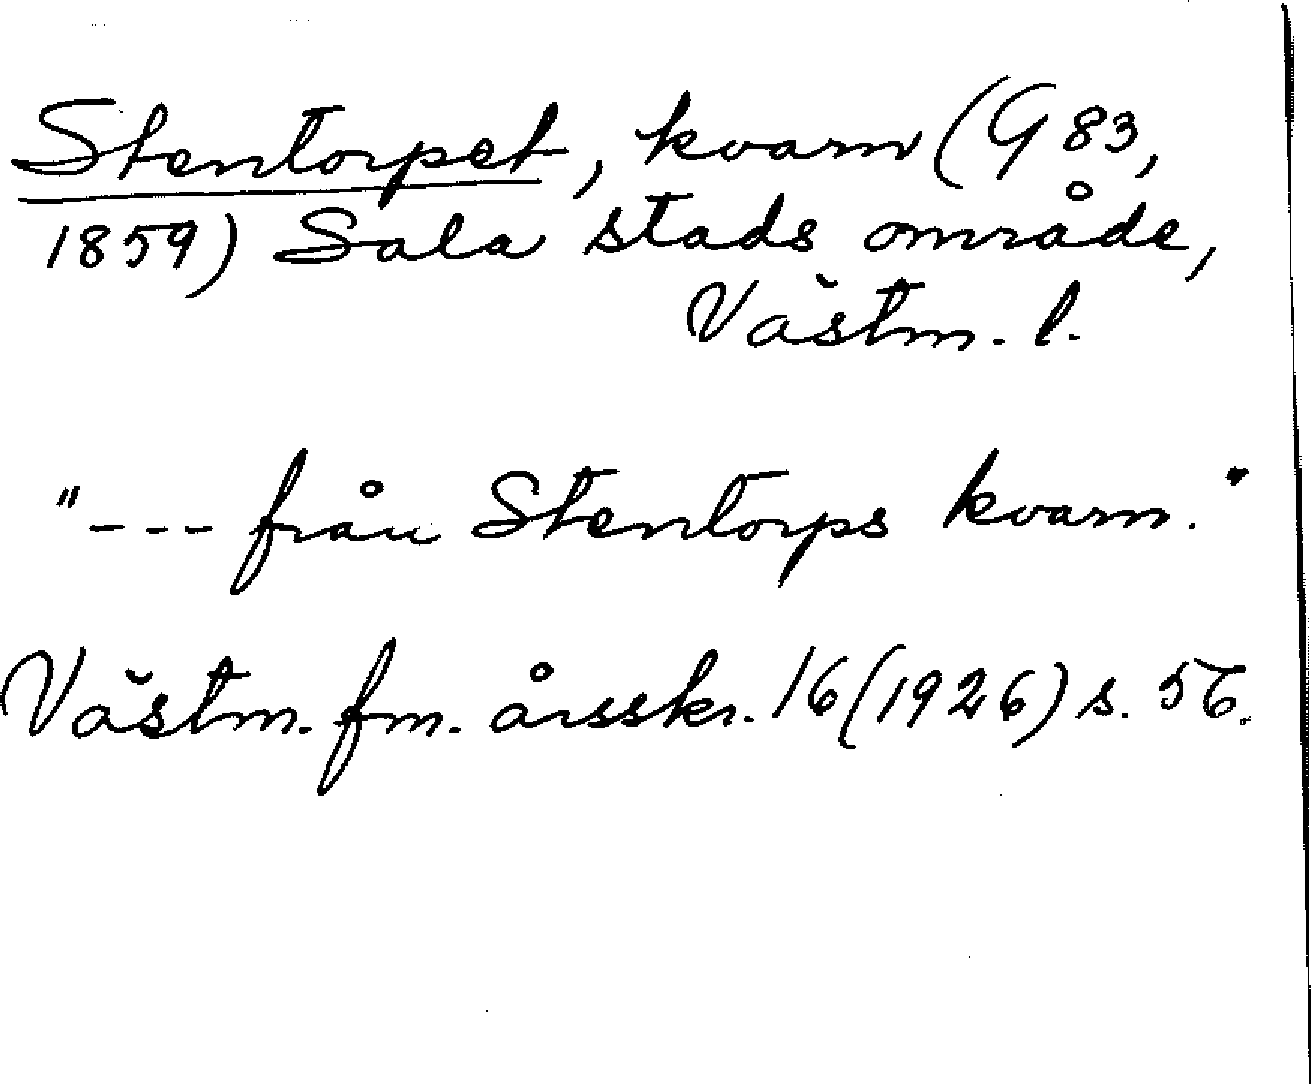 Stentorpet, kvarn (G 83,
1859) Sala stads område,
Västm. l.
"--- från Stentorps kvarn."
Västm. fm. årsskr. 16 (1926) s. 56.